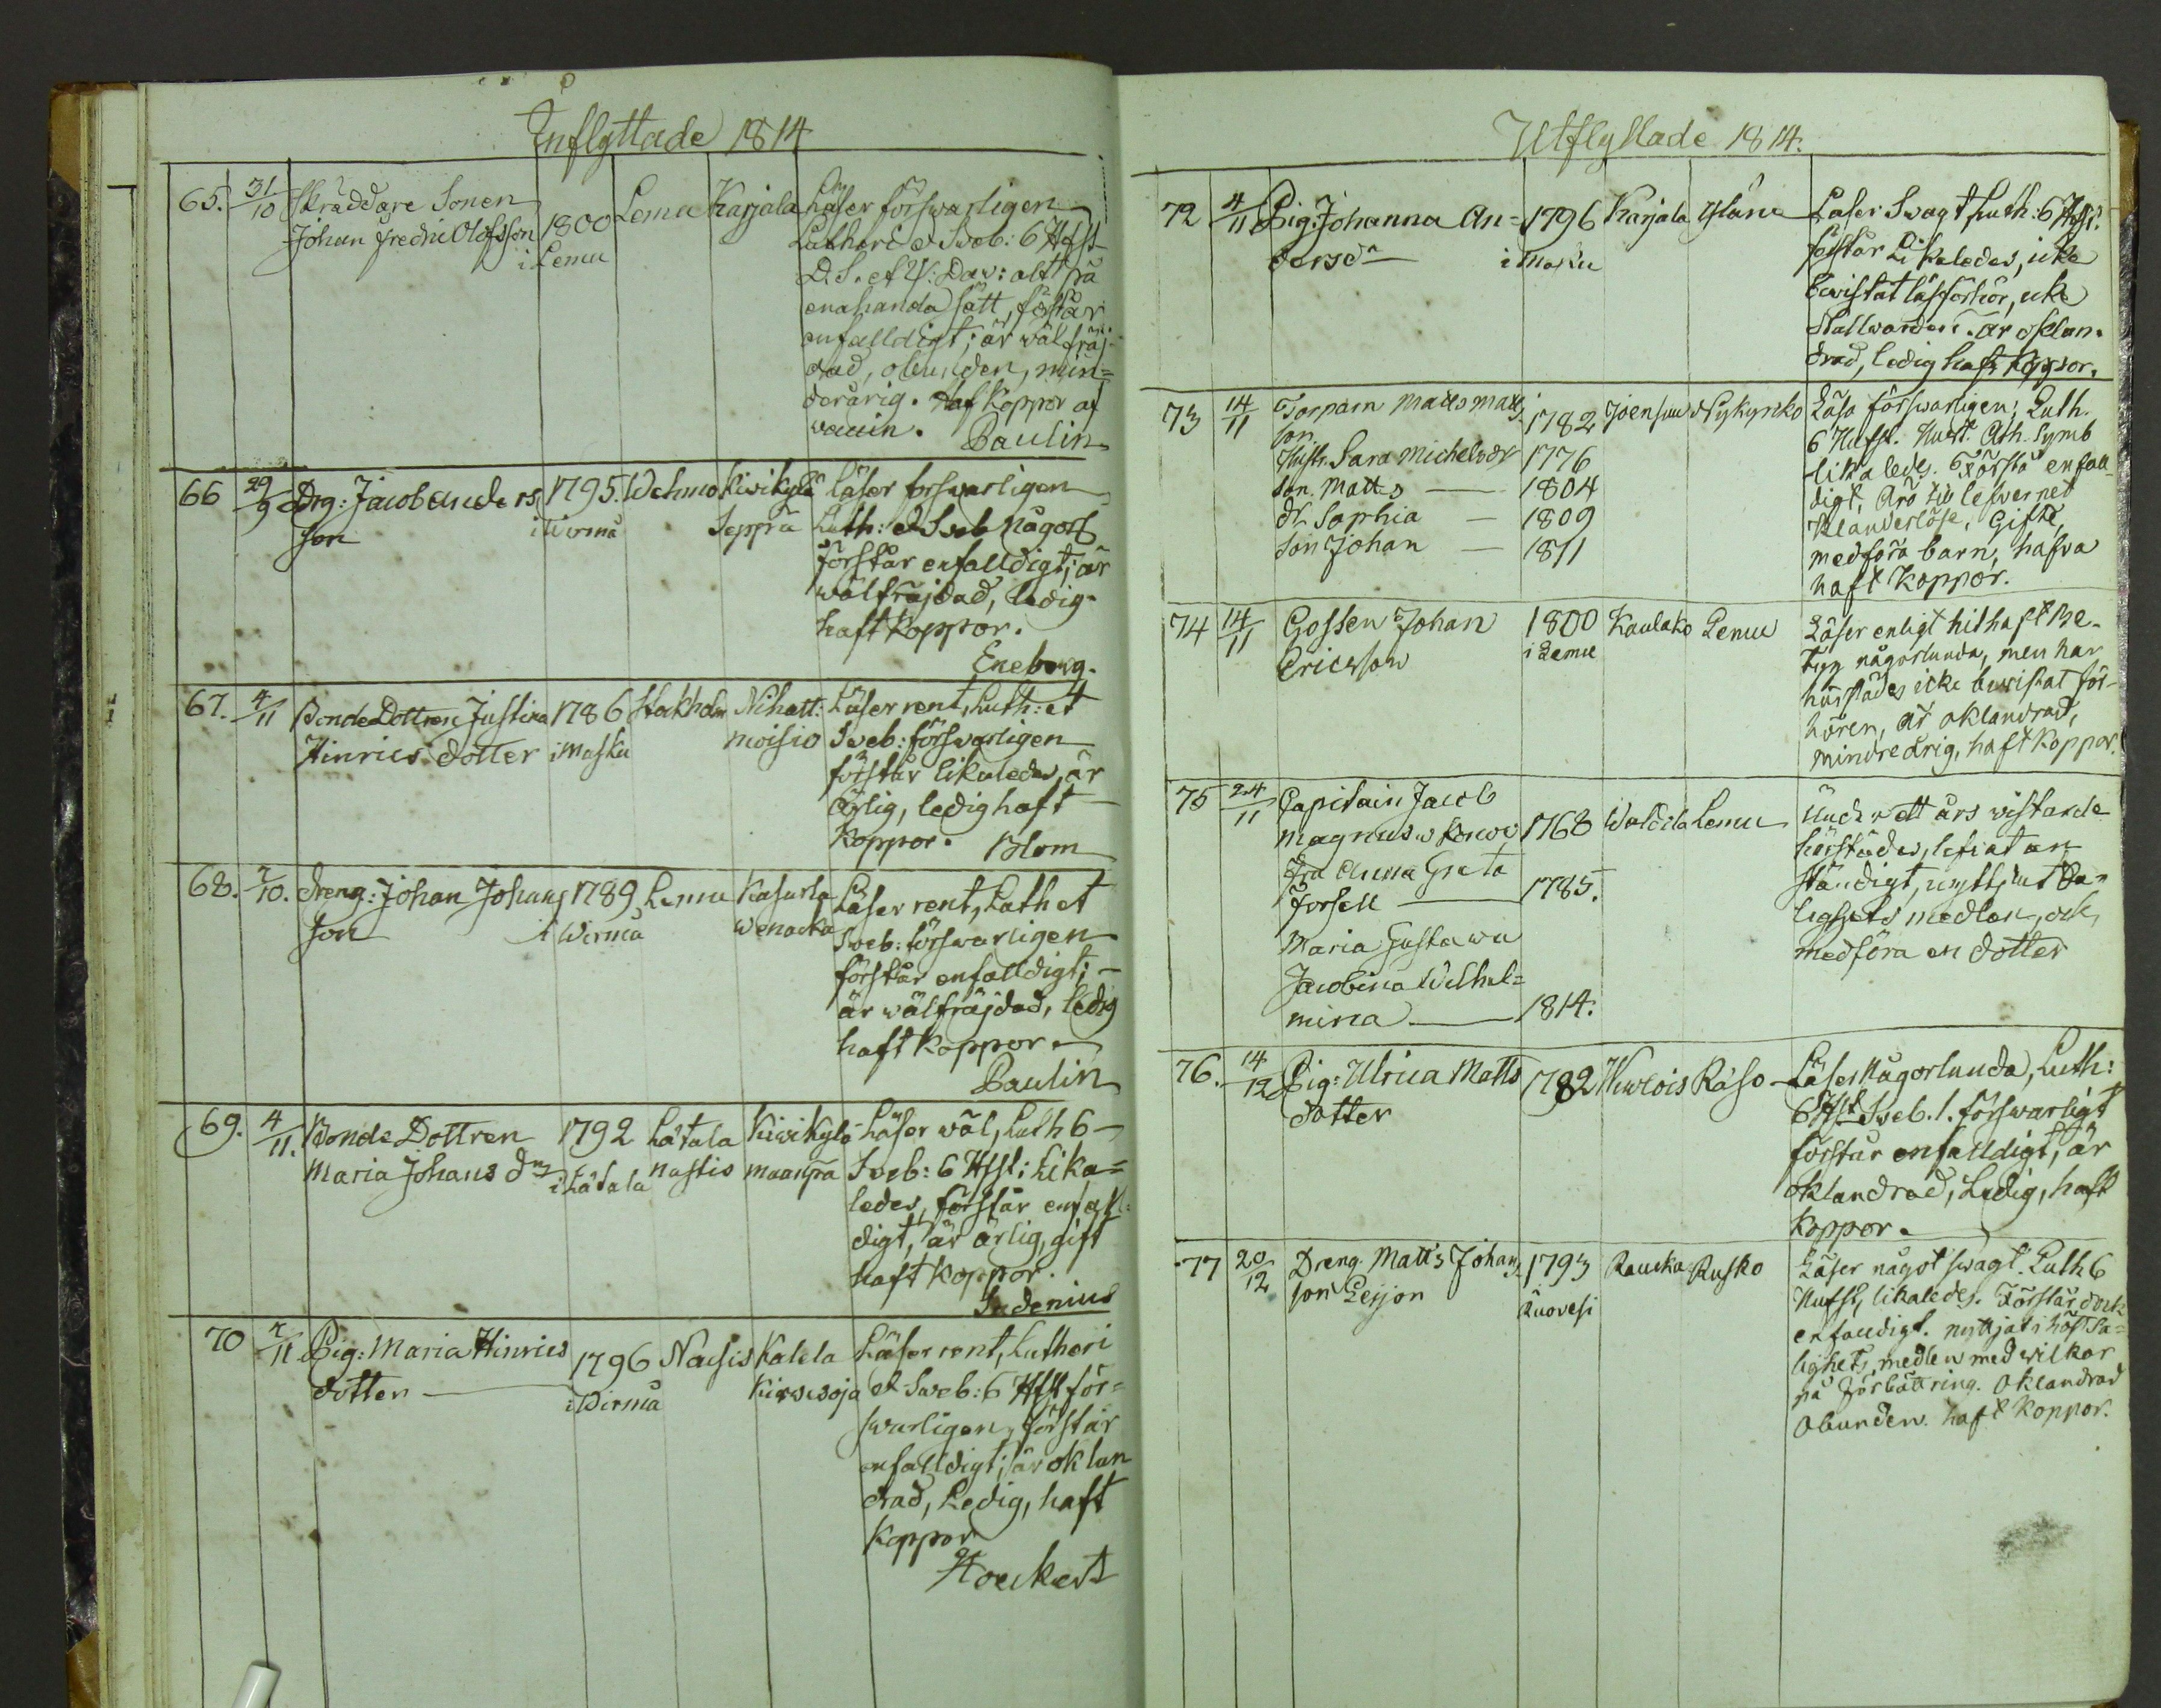 Inflyttade 1814
65. 31/10 Skräddare Sonen Lemu Karjala Läser försvarligen
Johan Fredric Olofsson 1800 Lutheri & Sveb: 6 Hfst
i Lemu D. S. et Ψ: Dav: alt på
enahanda sätt, förstår
enfalldigt; är välfräj-
dad, obunden, min=
derårig. Haf Koppor af
vaccin. Paulin
66 29/9 Drg: Jacob Anders 1795. Wehmo Kivikylä läser försvarligen
son i Wirmå Sepprä Luth: & Sveb någorl
förstår enfalldigt; är
välfräjdad, ledig
haft Koppor.
Eneberg.
67. 4/11 Bonde Dottren Justina 1786 Stockholm Nihatt: Läser rent, Luth: et
Hinrics dotter i Masku moisio Sveb: försvarligen
förstår likaledes, är
ärlig, ledig haft
Koppor. Blom
68. 7/10. Dreng: Johan Johans 1789 Lemu Kasurla Läser rent, Luth et
son i Wirmå Wenacka Sveb: försvarligen
förstår enfalldigt;
är välfräjdad, ledig
haft Koppor
Paulin
69. 4/11. Bonde Dottren 1792 Låtala Kivikylä Läser väl, Luth 6
Maria Johans dr i Låtala nastis maanpä Sveb: 6 Hfst: Lika=
ledes, förstår enfall=
digt, är ärlig, gift
haft Koppor.
Indenius
70 7/11 Pig: Maria Hinrics 1796 Nousis Kalela Läser rent, Lutheri
dotter i Wirmå Kirweoja et Sveb: 6 Hfst för=
svarligen, förstår
enfalldigt; är oklan
drad, Ledig, haft
Koppor
Hoeckert
Utflyttade 1814.
72 4/11 Pig: Johanna An= 1796 Karjala Yläne Läser Svagt Luth: 6 Hfst.
dersdr i Masku förstår Likaledes, icke
bevistat läsförhör, icke
Nattvarden. är oklan=
drad, ledig haft Koppor.
73 14/11 Torparn Matts Matts 1782 Joensuu Nykyrko Läsa försvarligen; Luth.
son. 6 Hufst. Hust. Ath. Symb
Hustr. Sara Michelsdr 1776 likaledes. Förstå enfall=
son. Matts 1804 digt, äro till lefvernet
dr Sophia 1809 klanderlöse, Gifte,
Son Johan 1811 medföra barn, hafva
haft Koppor.
74 14/11 Gossen Johan 1800 Kaulako Lemu Läser enligt hithaft Be-
Ericsson i Lemu tyg någorlunda, men har
härstädes icke bevistat för-
hören, är oklandrad,
minderårig, haft Koppor.
75 24/11 Capitain Jacob Under ett års vistande
Magnus v 1768 Waldila Lemu härstädes, lefvat an
Fru Anna Greta ständigt, nyttjat Sa=
Forsell 1785. lighets medlen, och
Maria Gustava medföra en dotter
Jacobina Wilhel=
mina 1814.
76. 14/12 Pig: Ulrica Matts 1782 Råso Läser någorlunda, Luth:
dotter 6 Hfst Sveb. l. försvarligt
förstår enfalldigt, är
oklandrad, Ledig, haft
Koppor.
77 20/12 Dreng Matts Johans 1793 Raucka Rusko Läser något svagt. Luth 6
son Lejon Ruovesi Hufst, likaledes. Förstår dock
enfaldigt. nyttjat i höst Sa=
lighets medlen med vilkor
på förbättring. Oklandrad
Obunden. haft Koppor.